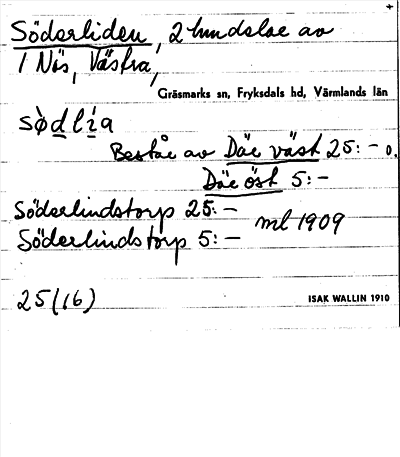 Söderliden, 2 hundslae av
1 Näs, Västra,
Gräsmarks sn, Fryksdals hd, Värmlands län
sø̀dlia
Bestå av Däe väst 25:- o.
Däe öst 5:-
Söderlindstorp 25:-
ml 1909
Söderlindstorp 5:-
25(16)
ISAK WALLIN 1910